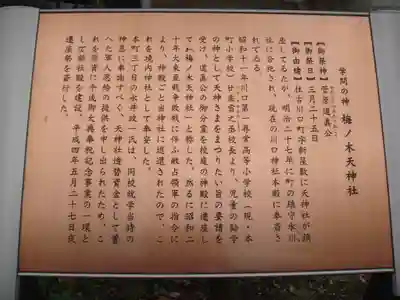 学問の神 梅ノ木天神社
【御祭神】菅原道真公
【御祭日】三月二十五日
【御由緒】往古川口町字新屋敷に天神社が鎮
座してゐたが、明治二十七年に町の鎮守氷川
社に合祀され、現在の川口神社本殿に奉斎さ
れてゐる
昭和十一年川口第一尋常高等小学校(現・本
町小学校)廿楽雲之丞校長より、児童の勧学
の神として天神さまをまつりたい旨の要請を
受け、道真公の御分霊を校庭の神殿に遷座し
て「梅ノ木天神社」と称した。然るに昭和二
十年大東亜戦争敗戦に伴ふ執占領軍の指令に
より、神殿ごと当神社に返還されたので、こ
れを境内神社として奉安した。
本町三丁目の永井政一氏は、同校就学当時の
神恩に奉謝すべく、天神社造替資金として蓄
へた軍人恩給の提供を申し出られたため、こ
れを原資に平成御大典奉祝記念事業の一環と
して新社殿を建設、平成四年五月二十七日夜
遷座祭を斎行した。